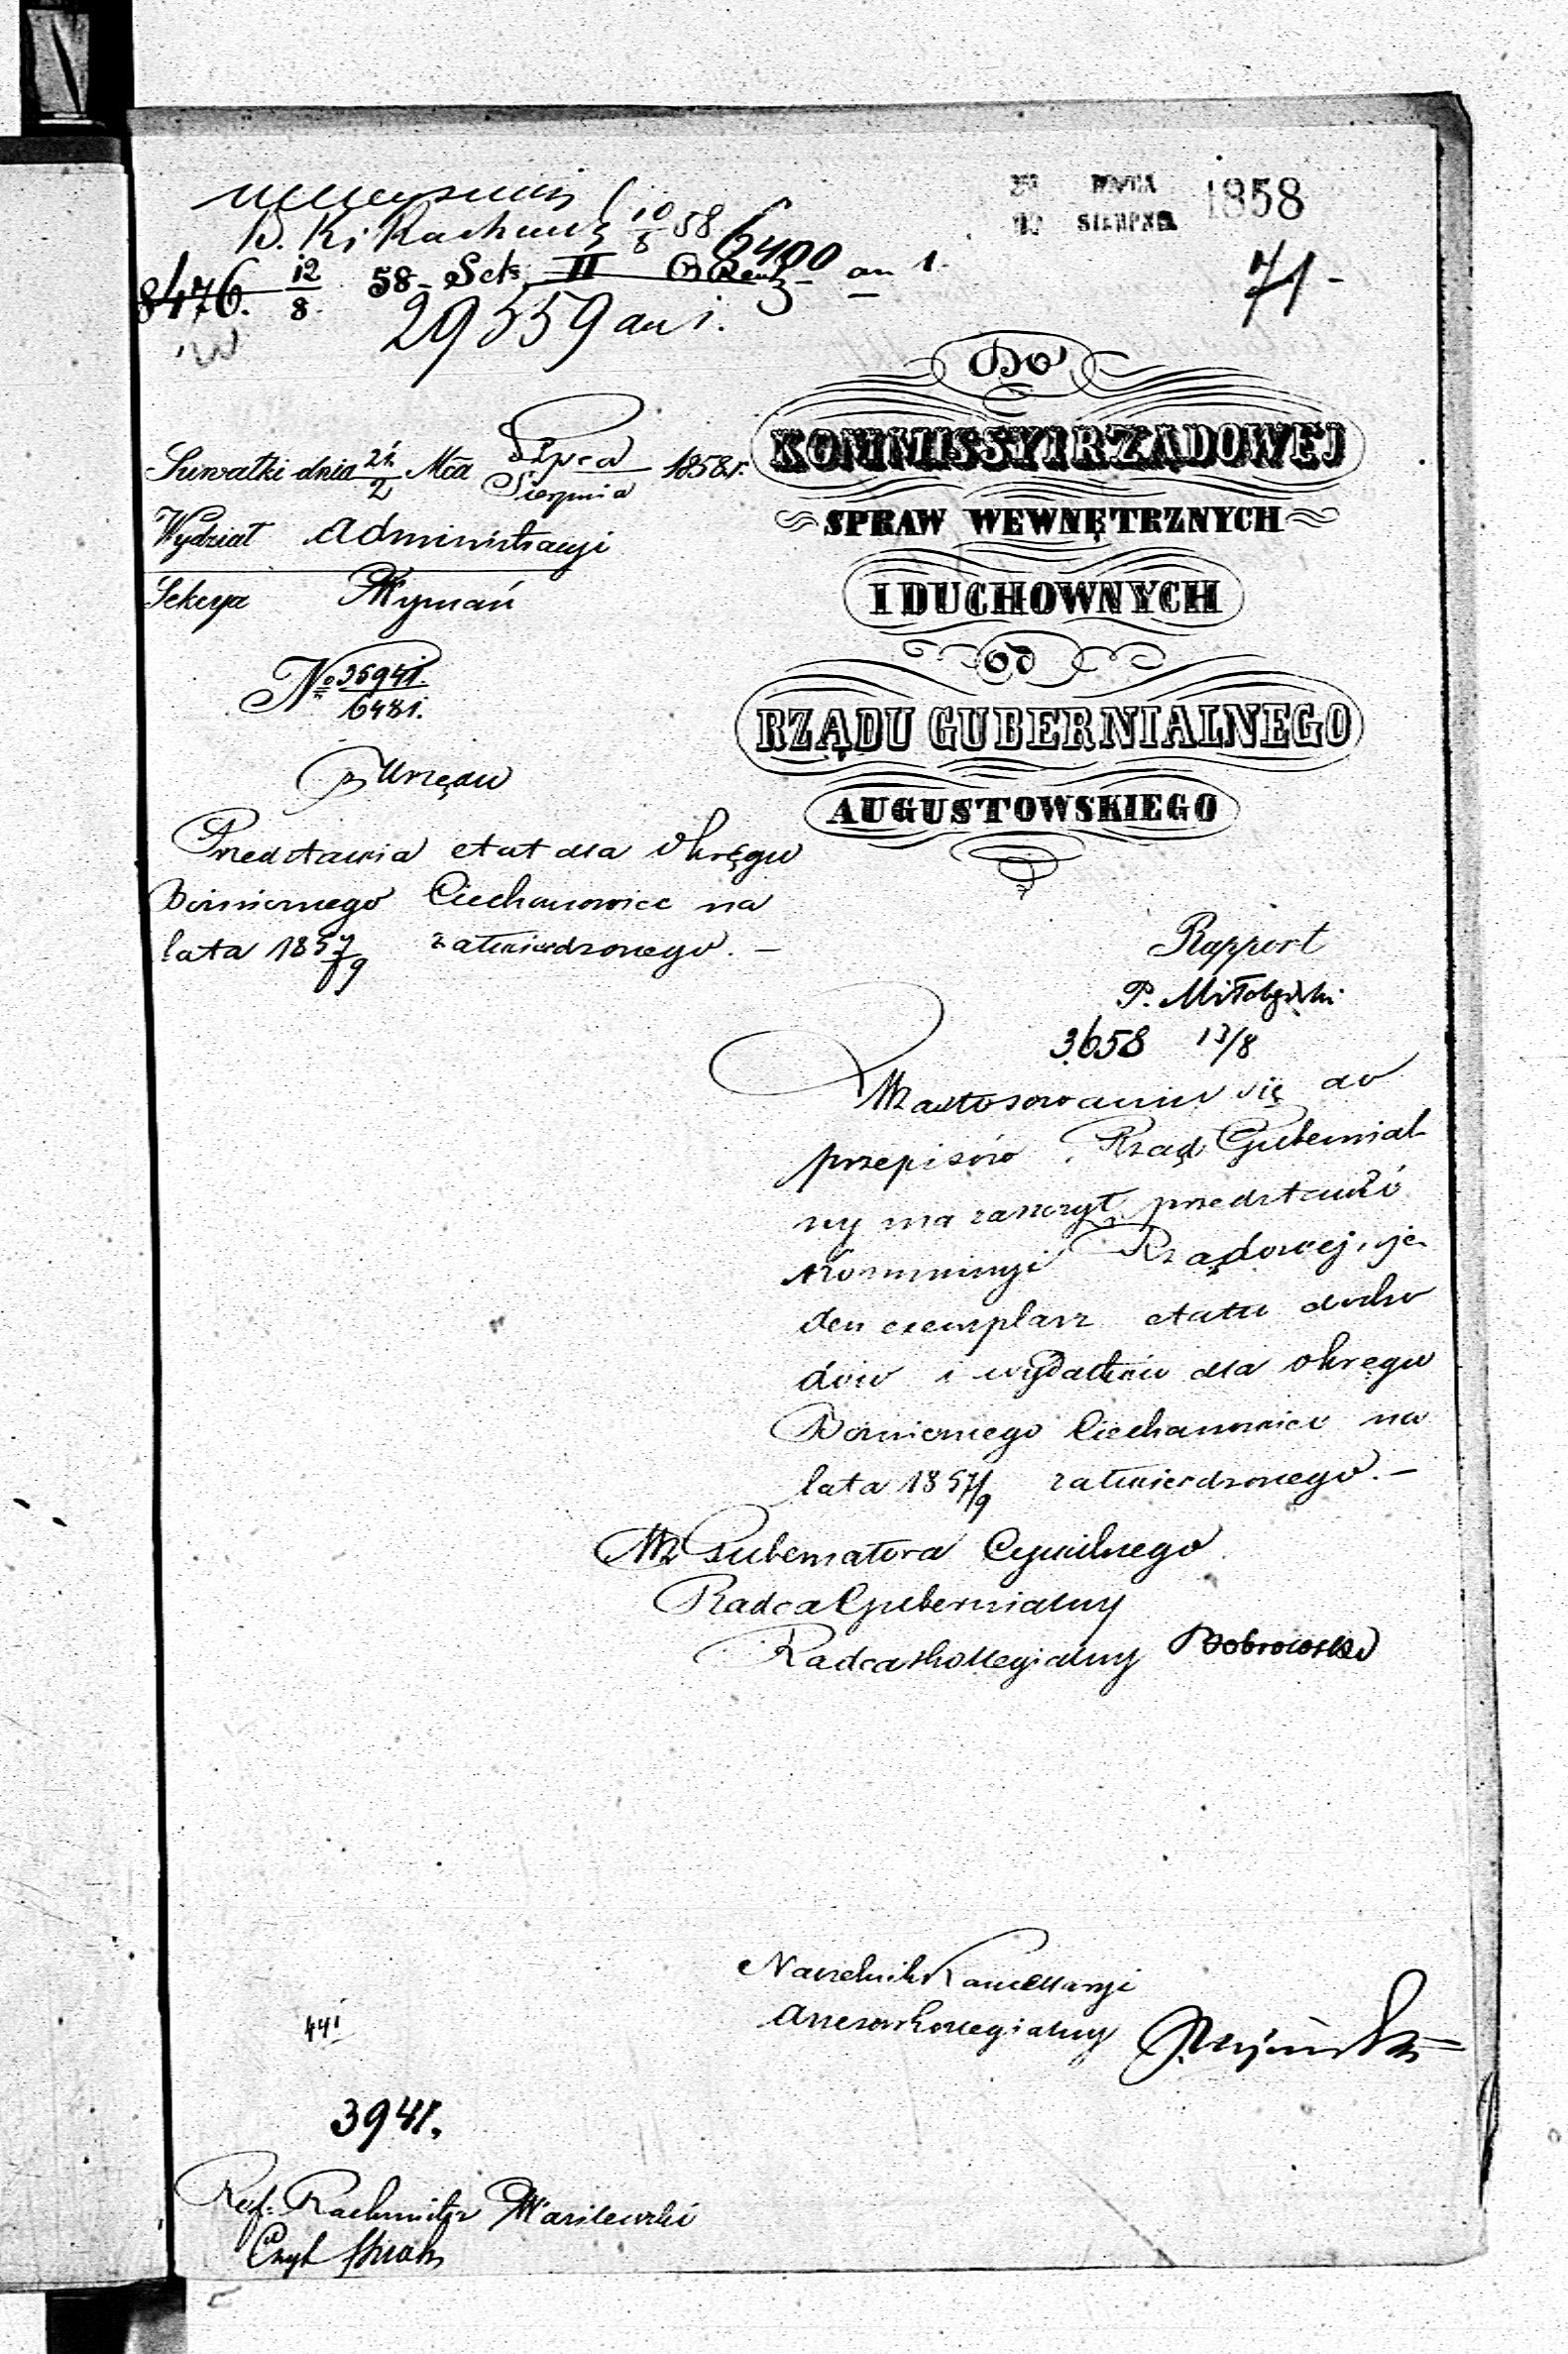 10/8 58 6400
8476. 12/8 58 Sek. II an 1.
29559 an 1.
LIPCA
SIERPNIA 1858
71-
Do
KOMMISSYI RZĄDOWEJ
SPRAW WEWNĘTRZNYCH
I DUCHOWNYCH
od
RZĄDU GUBERNIALNEGO
AUGUSTOWSKIEGO
Suwałki dnia 21/2 Mca Lipca/Sierpnia 1858 r.
Wydział Administracyi
Sekcya Wyznań
No 36941./6481.
z Urzędu
Przedstawia etat dla Okręgu
Bożnicznego Ciechanowiec na
lata 1857/9 zatwierdzonego. —
Rapport
P.
3658 13/8
W zastosowaniu się do
przepisów Rząd Gubernial
ny ma zaszczyt przedstawić
Kommissyi Rządowej, je-
den exemplarz etatu docho
dów i wydatków dla okręgu
Bożnicznego Ciechanowiec na
lata 1857/9 zatwierdzonego. —
Wz Gubernatora Cywilnego
Radca Gubernialny
Radca Kollegialny Dobrowolski
Naczelnik Kancellaryi
Assessor Kollegialny
441
3941.
Ref. Rachmistrz Wasilewski
Czyt.